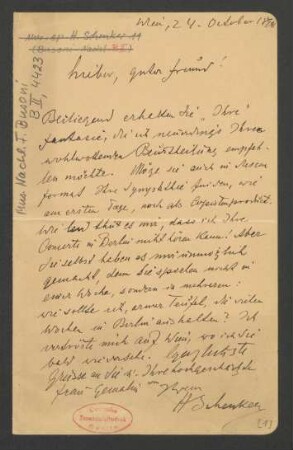 Wien, 24. October 1898
Mus. ep. H. Schenker 11
(Busoni-Nachl. B II)
Mus. Nachl. F. Busoni
B II, 4423
Lieber, guter Freund!
Beiliegend erhalten Sie „Ihre"
Fantasie, die ich neuerdings Ihrer
wohlwollenden Beurtheilung empfeh-
len möchte. Möge sie auch in diesem
Format Ihre Sympathie finden, wie
am ersten Tage, noch als
Wie leid thut es mir, dass ich Ihre
Concerte in Berlin nicht hören kann! Aber
Sie selbst haben es mir unmöglich
gemacht, denn Sie spielen nicht in
einer Woche, sondern in mehreren:
wie sollte ich, armer Teufel, die vielen
Wochen in Berlin aushalten? Ich
vertröste mich auf Wien, wo ich Sie
bald wiedersehe. Herzlichste
Grüsse an Sie u. Ihre hochgeschätzte
Frau Gemahlin Ihrem
H Schenker
[1]